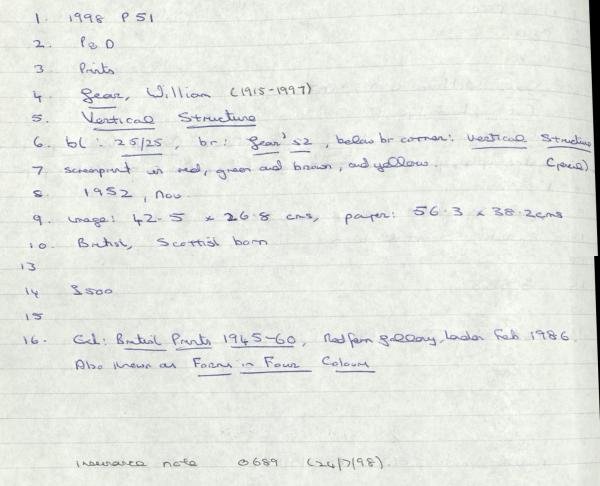 1. 1998 P 51
2. P&D
3 Prints
4 Gear, William (1915-1997)
5. Vertical Structure
6. bl: 25/25, br: Gear '52, below br corner: Vertical Structure
7 screenprint in red, green and brown, and yellow. (pencil)
8. 1952, Nov
9. image: 42.5 x 26.8 cms, paper: 56.3 x 38.2cms
10. British, Scottish born
13
14 £500
15
16. Cat: British Prints 1945-60, Redfern gallery, London Feb 1986.
Also known as Forms in Four Colours
insurance note 0689 (24/7/98).